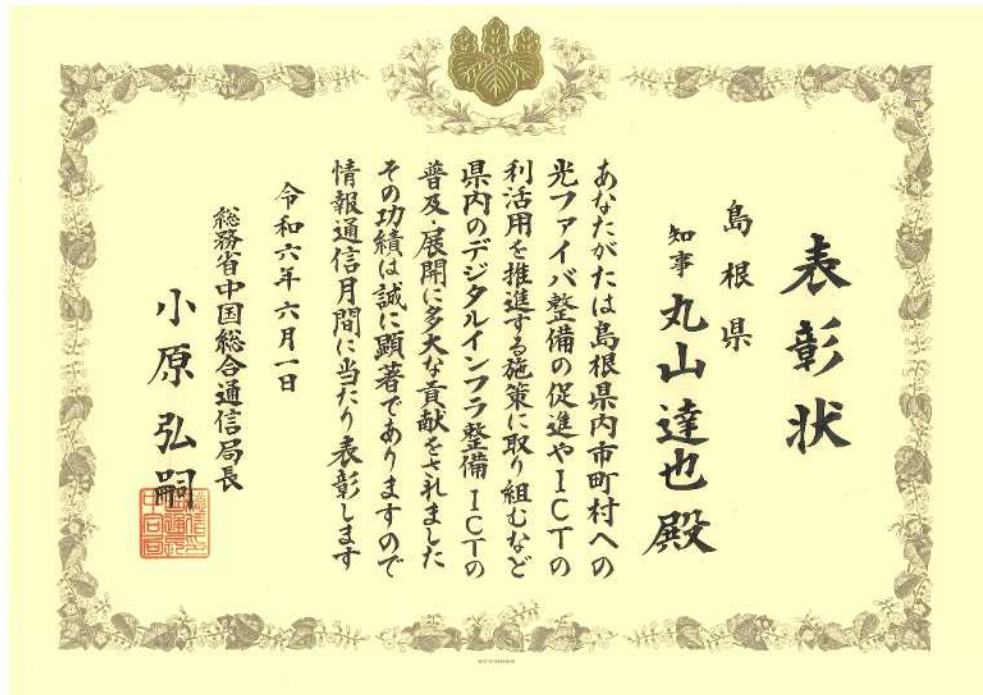 表彰状
島根県
知事 丸山達也殿
あなたがたは島根県内市町村への
光ファイバ整備の促進やICTの
利活用を推進する施策に取り組むなど
県内のデジタルインフラ整備 ICTの
普及・展開に多大な貢献をされました
その功績は誠に顕著でありますので
情報通信月間に当たり表彰します
令和六年六月一日
総務省中国総合通信局長
小原弘嗣